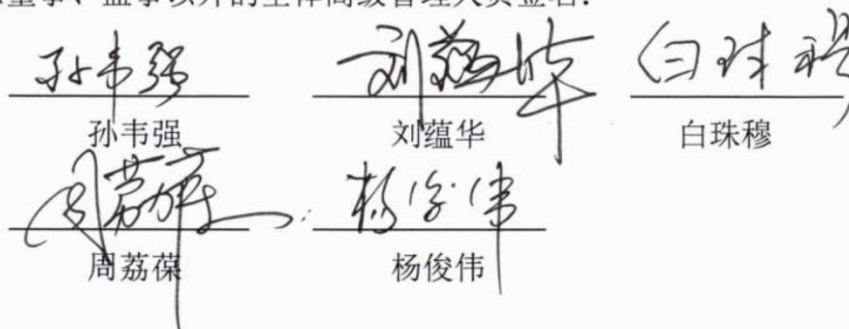 董事、监事以外的全体高级管理人员签名：
孙韦强 刘蕴华 白珠穆
孙韦强 刘蕴华 白珠穆
周荔葆 杨俊伟
周荔葆 杨俊伟